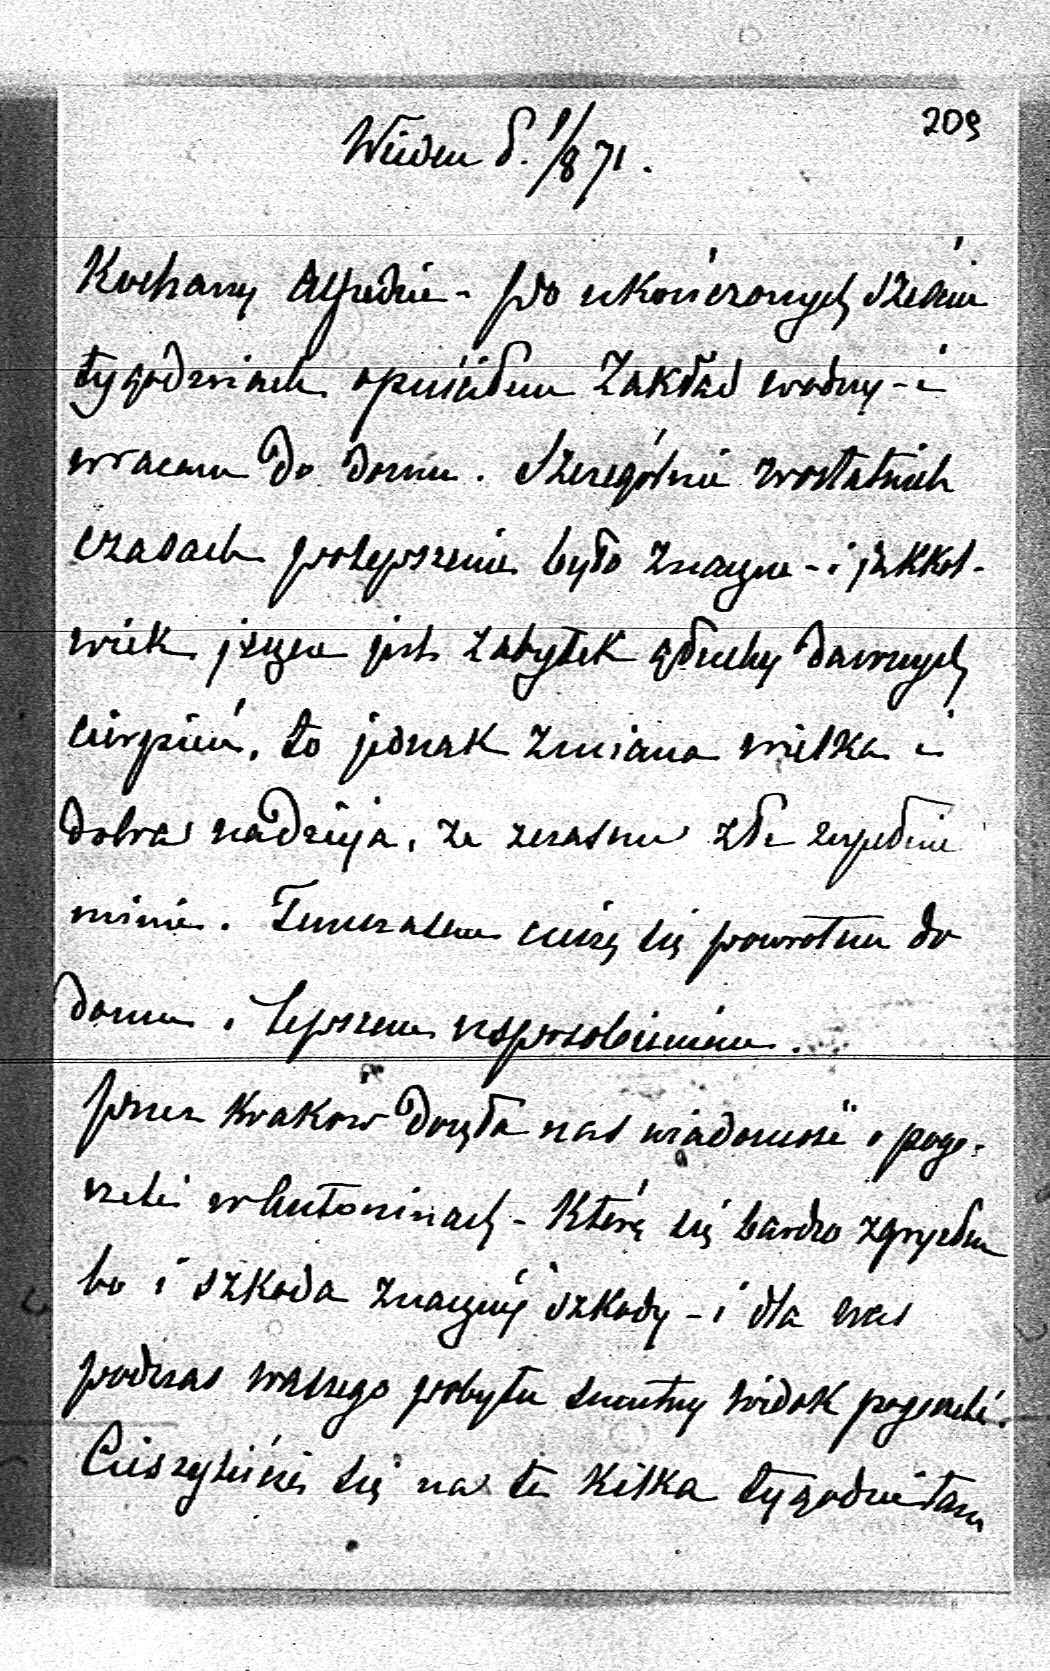 209
Wiedeń d. 1/8 71.
Kochany Alfredzie - po ukończonych sześciu
tygodniach opuściłem Zakład wodny - i
wracam do domu. Szczególnie w ostatnich
czasach polepszenie było znaczne - i jakkol-
wiek jeszcze jest zabytek dawnych
cierpień, to jednak zmiana wielka i
dobra nadzieja, że z czasem złe zupełnie
minie. Tymczasem cieszę się powrotem do
domu i lepszem usposobieniem.
przez Kraków doszła nas wiadomość o pogo-
rzeli w Antoninach - którą się bardzo zgryzłem
bo i szkoda znacznej szkody - i dla was
podczas waszego pobytu smutny widok pogorzeli.
Cieszyliście się na te kilka tygodni tam